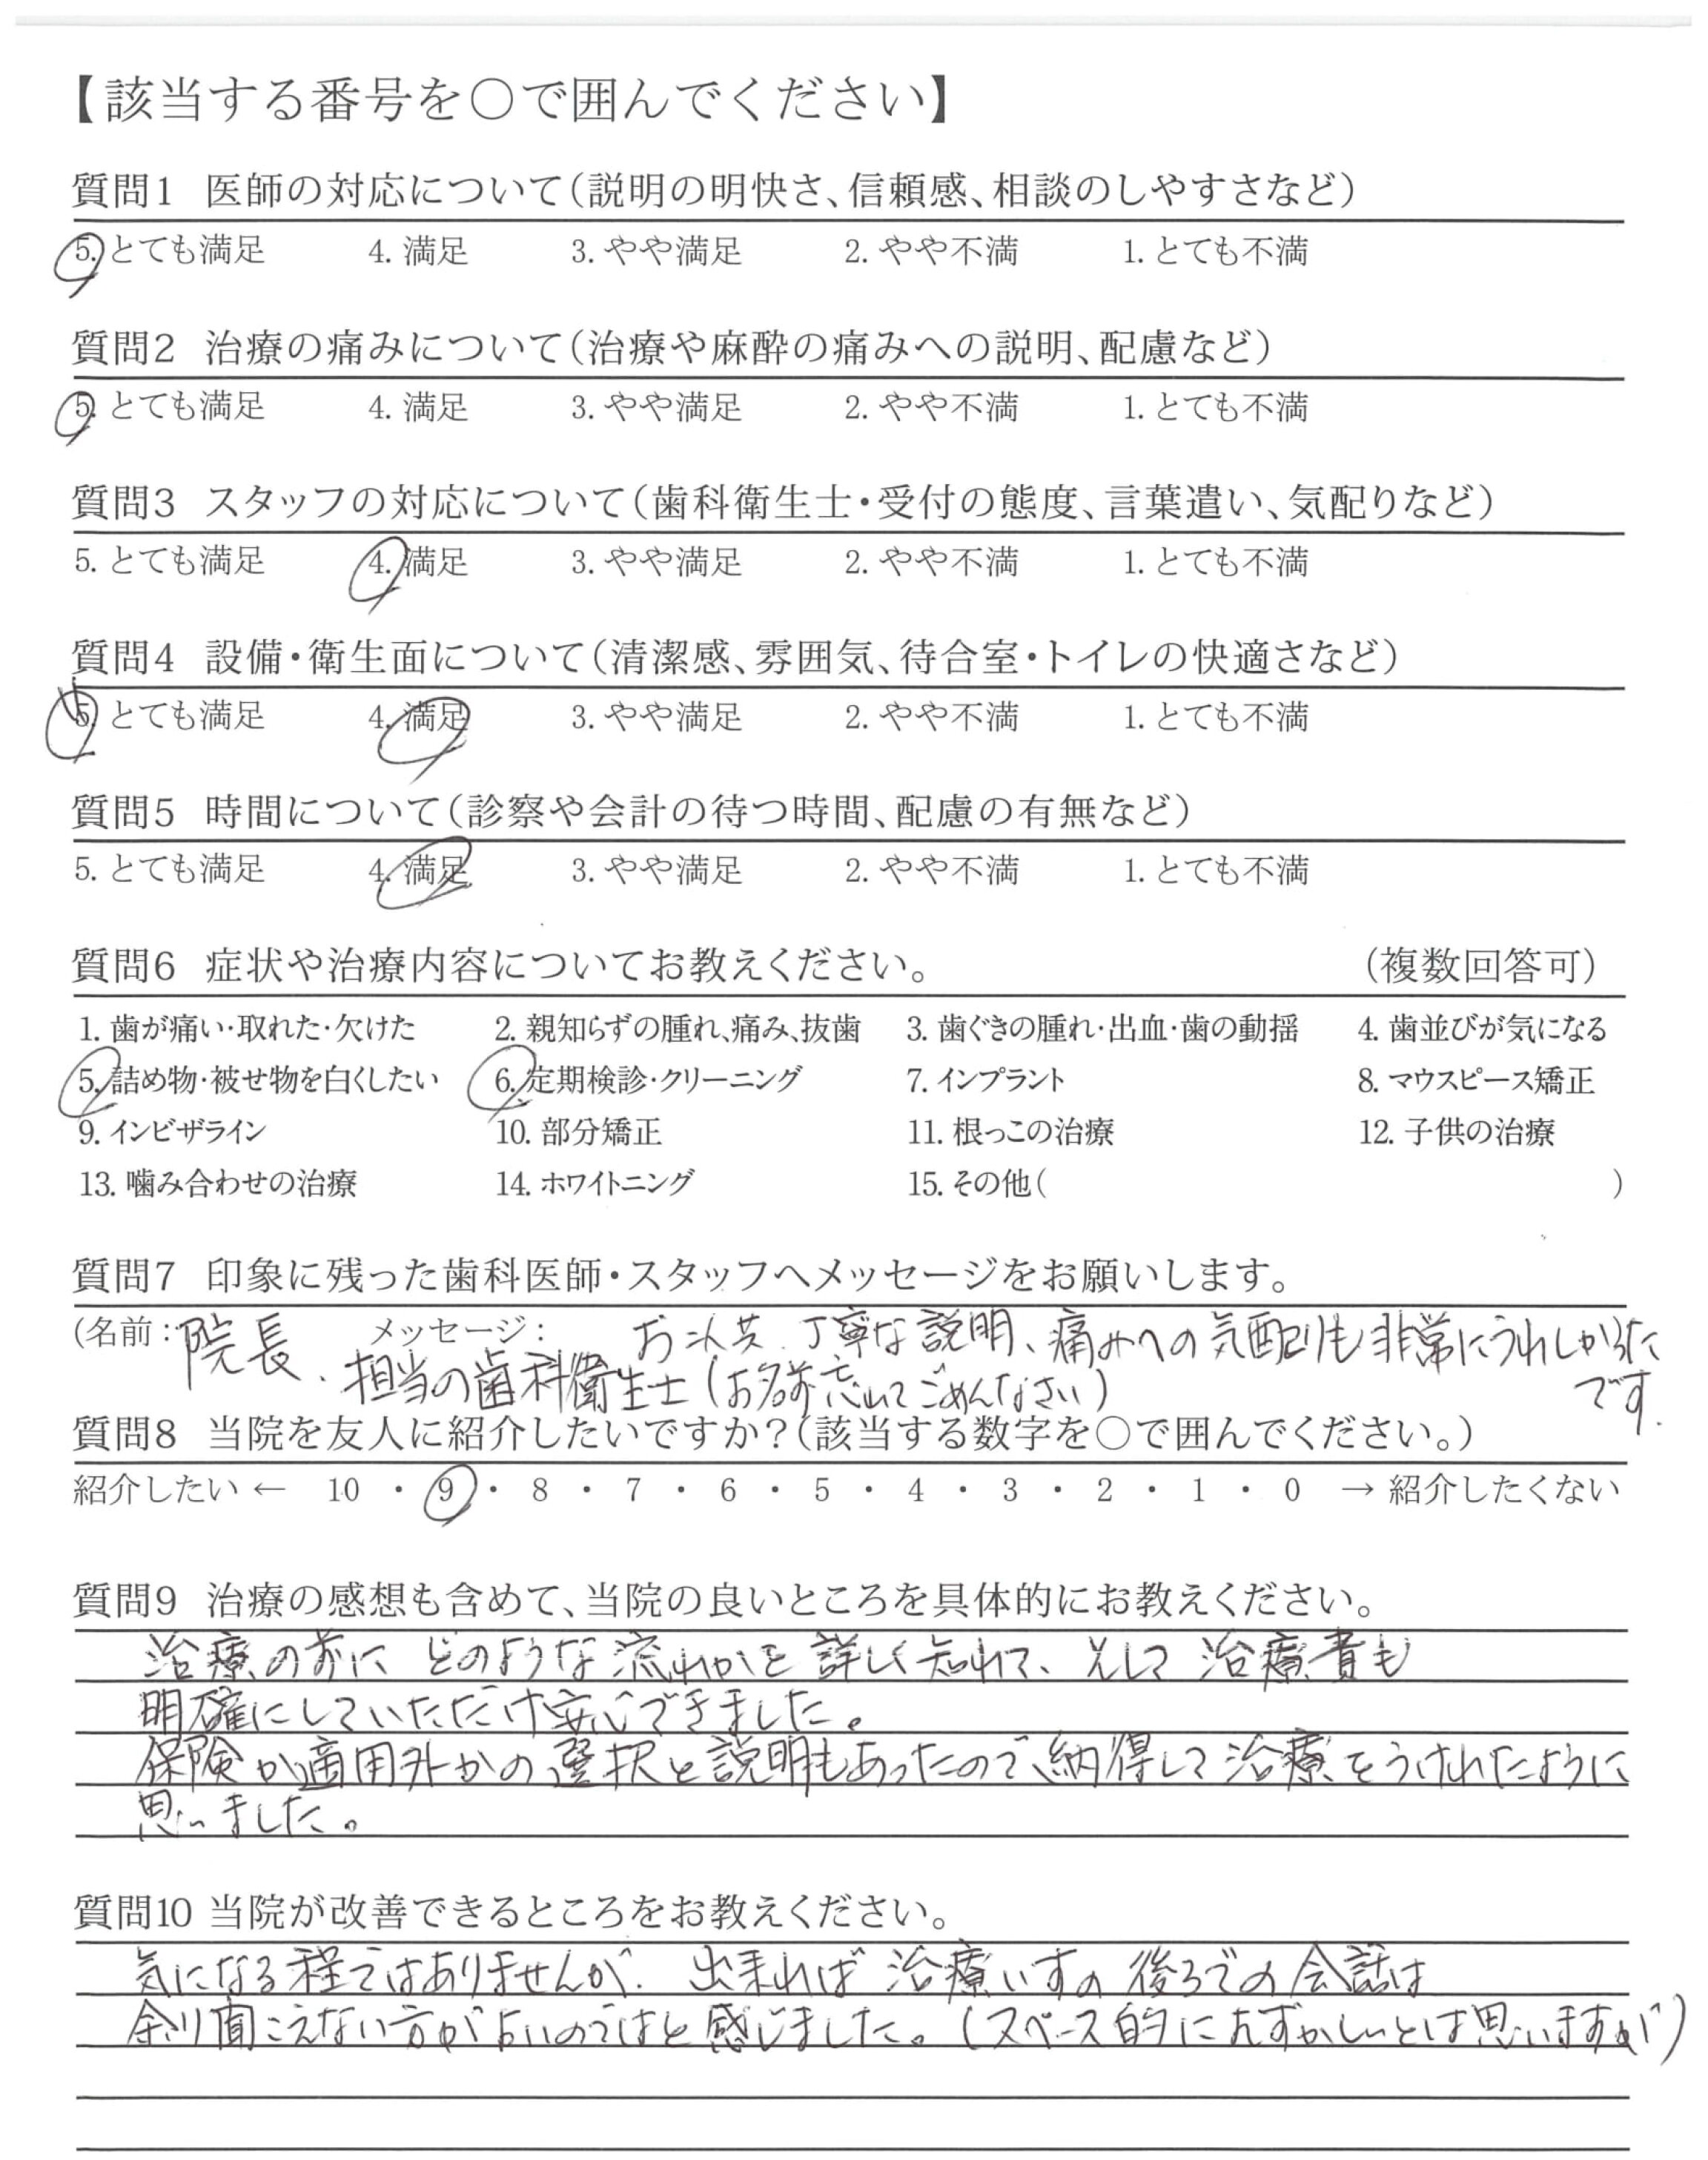 【該当する番号を○で囲んでください】
質問1 医師の対応について(説明の明快さ、信頼感、相談のしやすさなど)
5. とても満足 4. 満足 3. やや満足 2. やや不満 1. とても不満
質問2 治療の痛みについて(治療や麻酔の痛みへの説明、配慮など)
5. とても満足 4. 満足 3. やや満足 2. やや不満 1. とても不満
質問3 スタッフの対応について(歯科衛生士・受付の態度、言葉遣い、気配りなど)
5. とても満足 4. 満足 3. やや満足 2. やや不満 1. とても不満
質問4 設備・衛生面について(清潔感、雰囲気、待合室・トイレの快適さなど)
5. とても満足 4. 満足 3. やや満足 2. やや不満 1. とても不満
質問5 時間について(診察や会計の待つ時間、配慮の有無など)
5. とても満足 4. 満足 3. やや満足 2. やや不満 1. とても不満
質問6 症状や治療内容についてお教えください。 (複数回答可)
1. 歯が痛い・取れた・欠けた 2. 親知らずの腫れ、痛み、抜歯 3. 歯ぐきの腫れ・出血・歯の動揺 4. 歯並びが気になる
5. 詰め物・被せ物を白くしたい 6. 定期検診・クリーニング 7. インプラント 8. マウスピース矯正
9. インビザライン 10. 部分矯正 11. 根っこの治療 12. 子供の治療
13. 噛み合わせの治療 14. ホワイトニング 15. その他( )
質問7 印象に残った歯科医師・スタッフへメッセージをお願いします。
(名前:院長 メッセージ: お二人共、丁寧な説明、痛みへの気配りも非常にうれしかった
、担当の歯科衛生士(お名前忘れてごめんなさい) です.
質問8 当院を友人に紹介したいですか?(該当する数字を○で囲んでください。)
紹介したい ← 10 ・ 9 ・ 8 ・ 7 ・ 6 ・ 5 ・ 4 ・ 3 ・ 2 ・ 1 ・ 0 → 紹介したくない
質問9 治療の感想も含めて、当院の良いところを具体的にお教えください。
治療の前に どのような流れかを詳しく知れて、そして治療費も
明確にしていただけ安心できました。
保険か適用外かの選択と説明もあったので、納得して治療をうけれたように
思いました。
質問10 当院が改善できるところをお教えください。
気になる程ではありませんが、出来れば治療いすの後ろでの会話は
余り聞こえない方が良いのではと感じました。(スペース的にむずかしいとは思いますが)